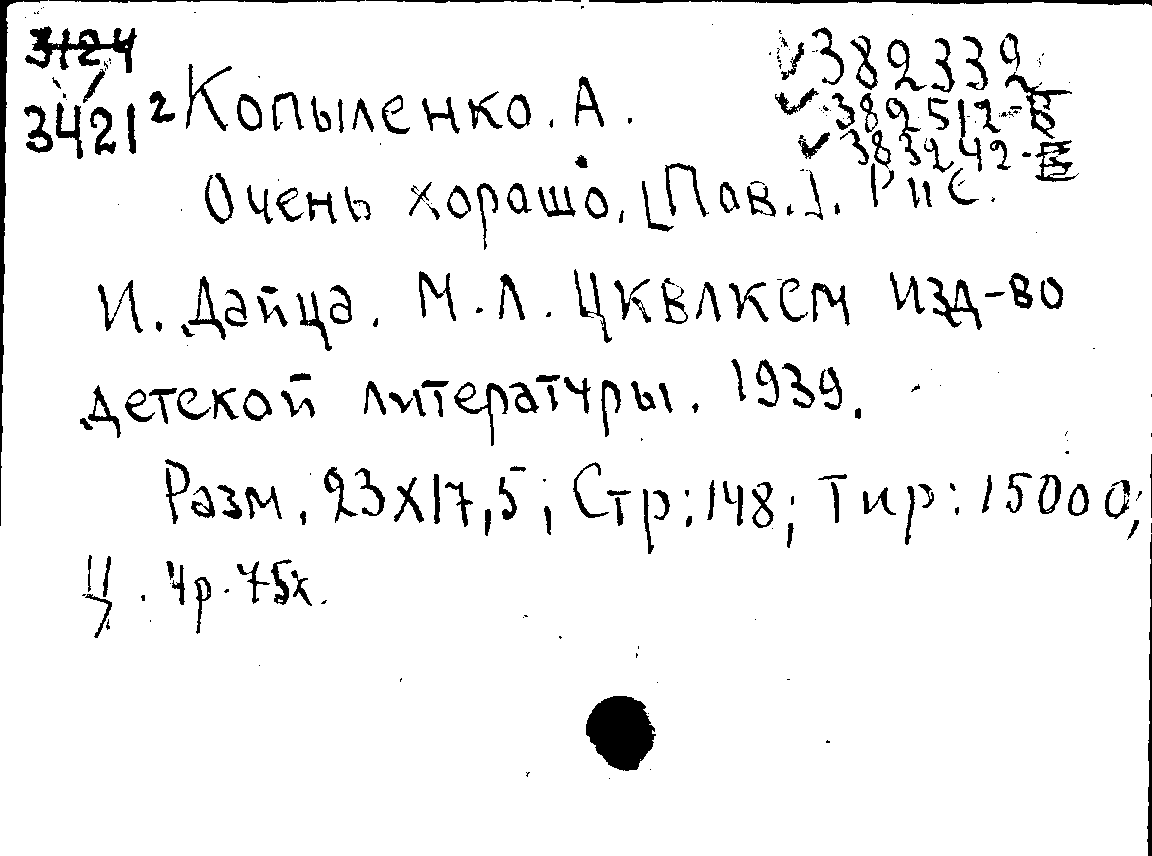 3124
3421² Копыленко. А.
✓382332
✓382512-Б
✓383242-
Очень хорашо. [Пав.]. Рис.
И. Дайца. М. Л. ЦКВЛКСМ изд-во
детской литературы. 1939.
Разм. 23X17,5; Стр: 148; Тир: 15000;
Ц. 4р. 75к.